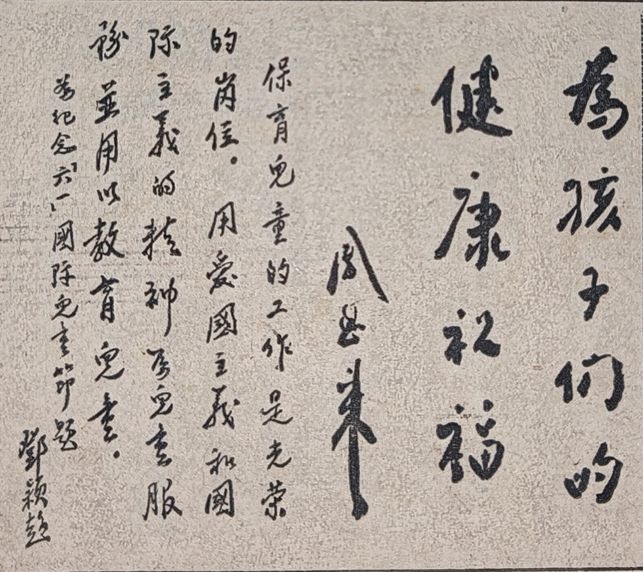 為孩子们的
健康祝福
周恩来
保育兒童的工作是光荣
的崗位。用爱國主義和國
际主義的精神为兒童服
務並用以教育兒童。
为纪念"六一"國际兒童節题
鄧颖超